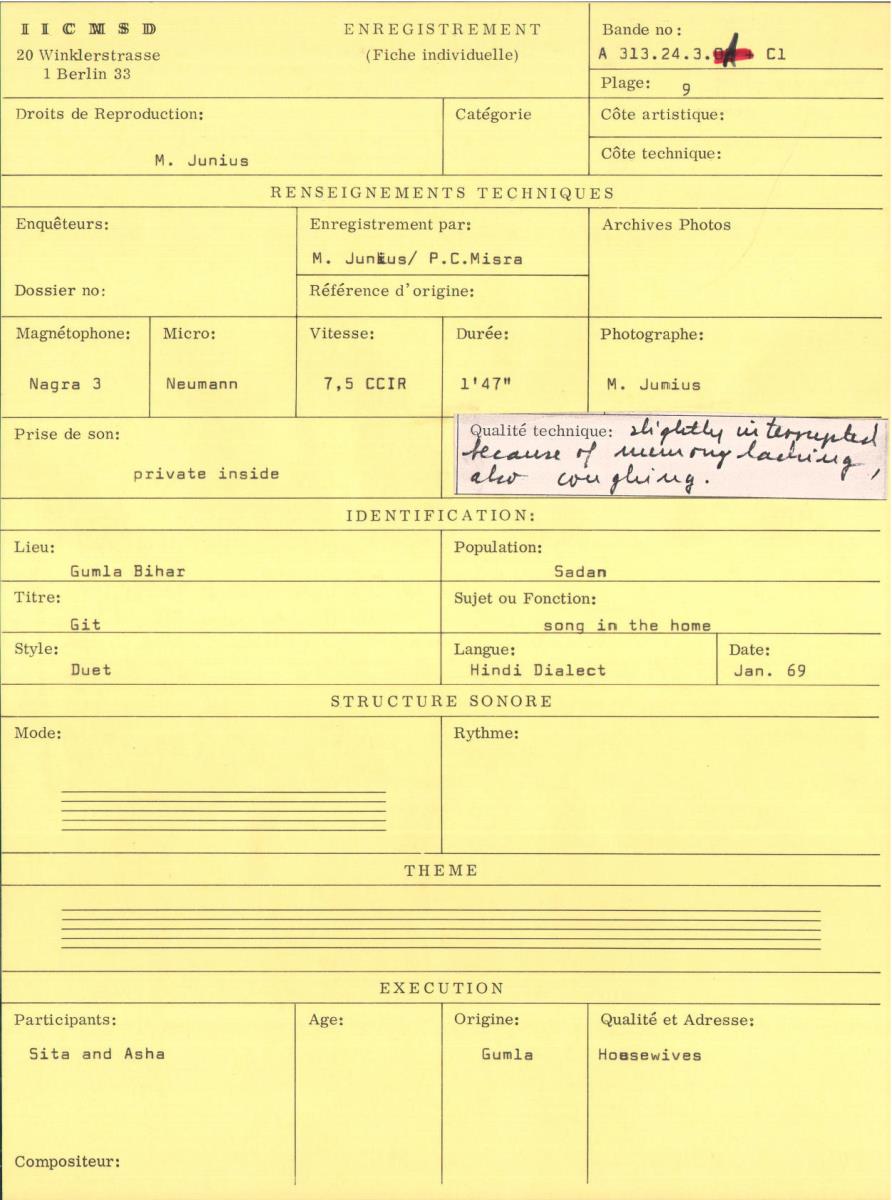 IICMSD
20 Winklerstrasse
1 Berlin 33
ENREGISTREMENT
(Fiche individuelle)
Bande no:
A 313.24.3. A C1
Plage: 9
Droits de Reproduction:
M. Junius
Catégorie
Côte artistique:
Côte technique:
RENSEIGNEMENTS TECHNIQUES
Enquêteurs:
Dossier no:
Enregistrement par:
M. Junius/ P.C.Misra
Référence d'origine:
Archives Photos
Magnétophone:
Nagra 3
Micro:
Neumann
Vitesse:
7,5 CCIR
Durée:
1'47"
Photographe:
M. Jumius
Prise de son:
private inside
Qualité technique: slightly interrupted
because of memory lacking,
also coughing.
IDENTIFICATION:
Lieu:
Gumla Bihar
Population:
Sadan
Titre:
Git
Sujet ou Fonction:
song in the home
Style:
Duet
Langue:
Hindi Dialect
Date:
Jan. 69
STRUCTURE SONORE
Mode:
Rythme:
THEME
EXECUTION
Participants:
Sita and Asha
Age:
Origine:
Gumla
Qualité et Adresse:
Housewives
Compositeur: